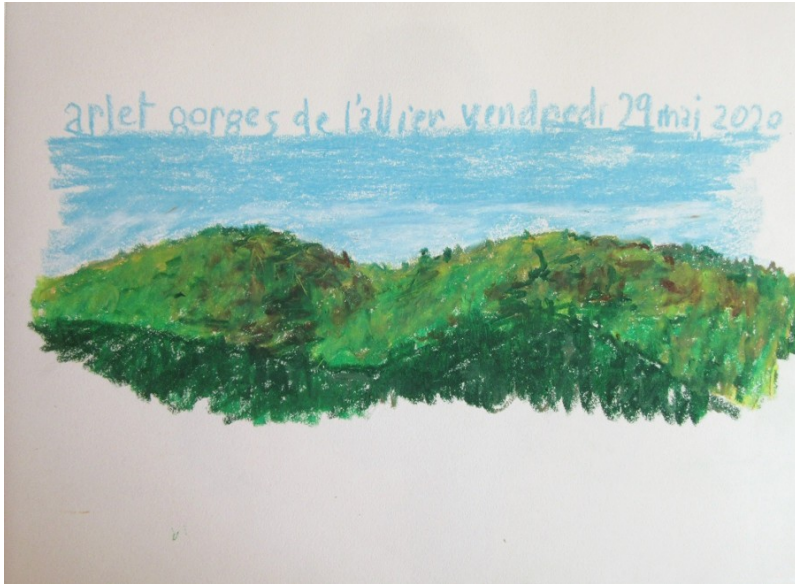 arlet gorges de l'allier vendredi 29 mai 2020